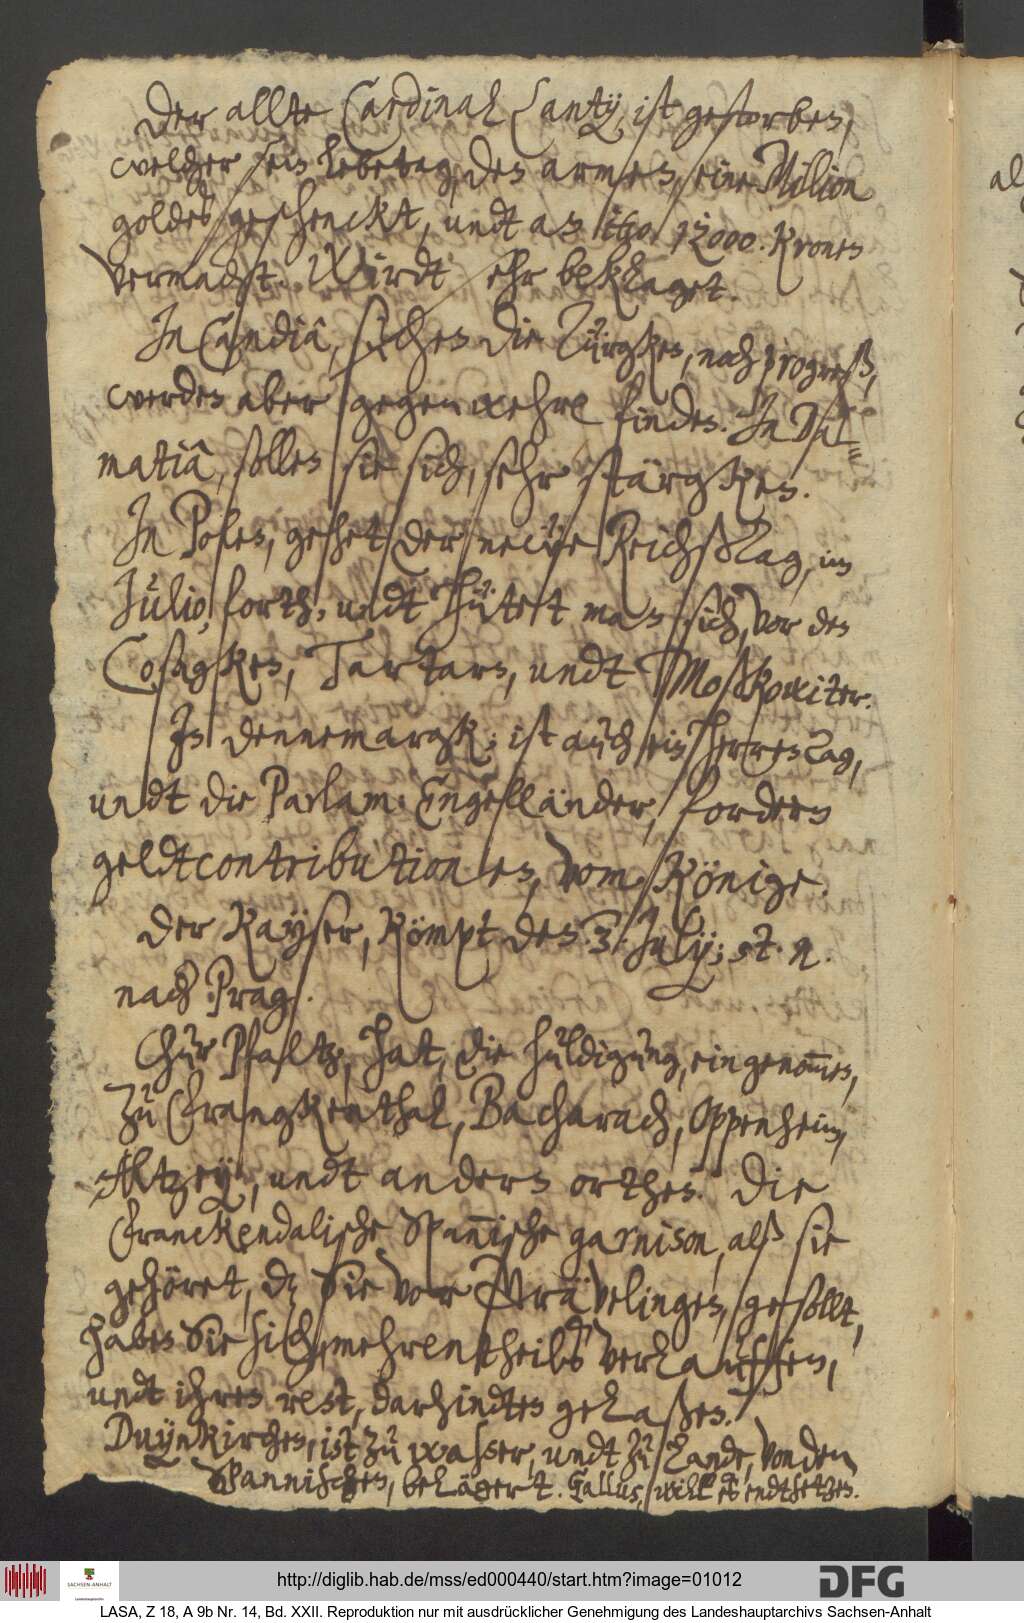 Der allte Cardinal Lantÿ, ist gestorben,
welcher sein lebetag, den armen, eine Milion
goldes geschenckt, undt an itzo 12000 Kronen
vermacht. Wirdt sehr beklaget.
In Candiâ, suchen die Türgken, noch progreß,
werden aber gegenwehre finden. In Dal=
matiâ, sollen sie sich, sehr stärgken.
In Polen, gehet der neẅe ReichßTag, im
Julio, forth, undt hütett man sich, vor den
Cosagken, Tartarn, undt Moßkowiter.
In Dennemargk; ist auch ein HerrenTag,
undt die Parlam: Engelländer, fordern
geldtcontributionen, vom Könige.
Der Kayser, kömpt den 3. Julÿ; st. n.
nach Prag.
Chur Pfaltz, hat, die huldigung, eingenom̅en,
zu Frangkenthal, Bacharach, Oppenheim,
Altzeÿ, undt andern orthen. Die
Franckendalische Span̅ische garnison, alß sie
gehöret, dz Sie vor Grävelingen, gesollt,
haben Sie sich, mehrentheilß verlauffen,
undt ihren rest, darhindten gelaßen.
Duÿnkirchen, ist zu waßer, undt zu Lande, von den
Spannischen, belägert. Gallus, will es endtsetzen.
http://diglib.hab.de/mss/ed000440/start.htm?image=01012
SACHSEN-ANHALT
DFG
LASA, Z 18, A 9b Nr. 14, Bd. XXII. Reproduktion nur mit ausdrücklicher Genehmigung des Landeshauptarchivs Sachsen-Anhalt